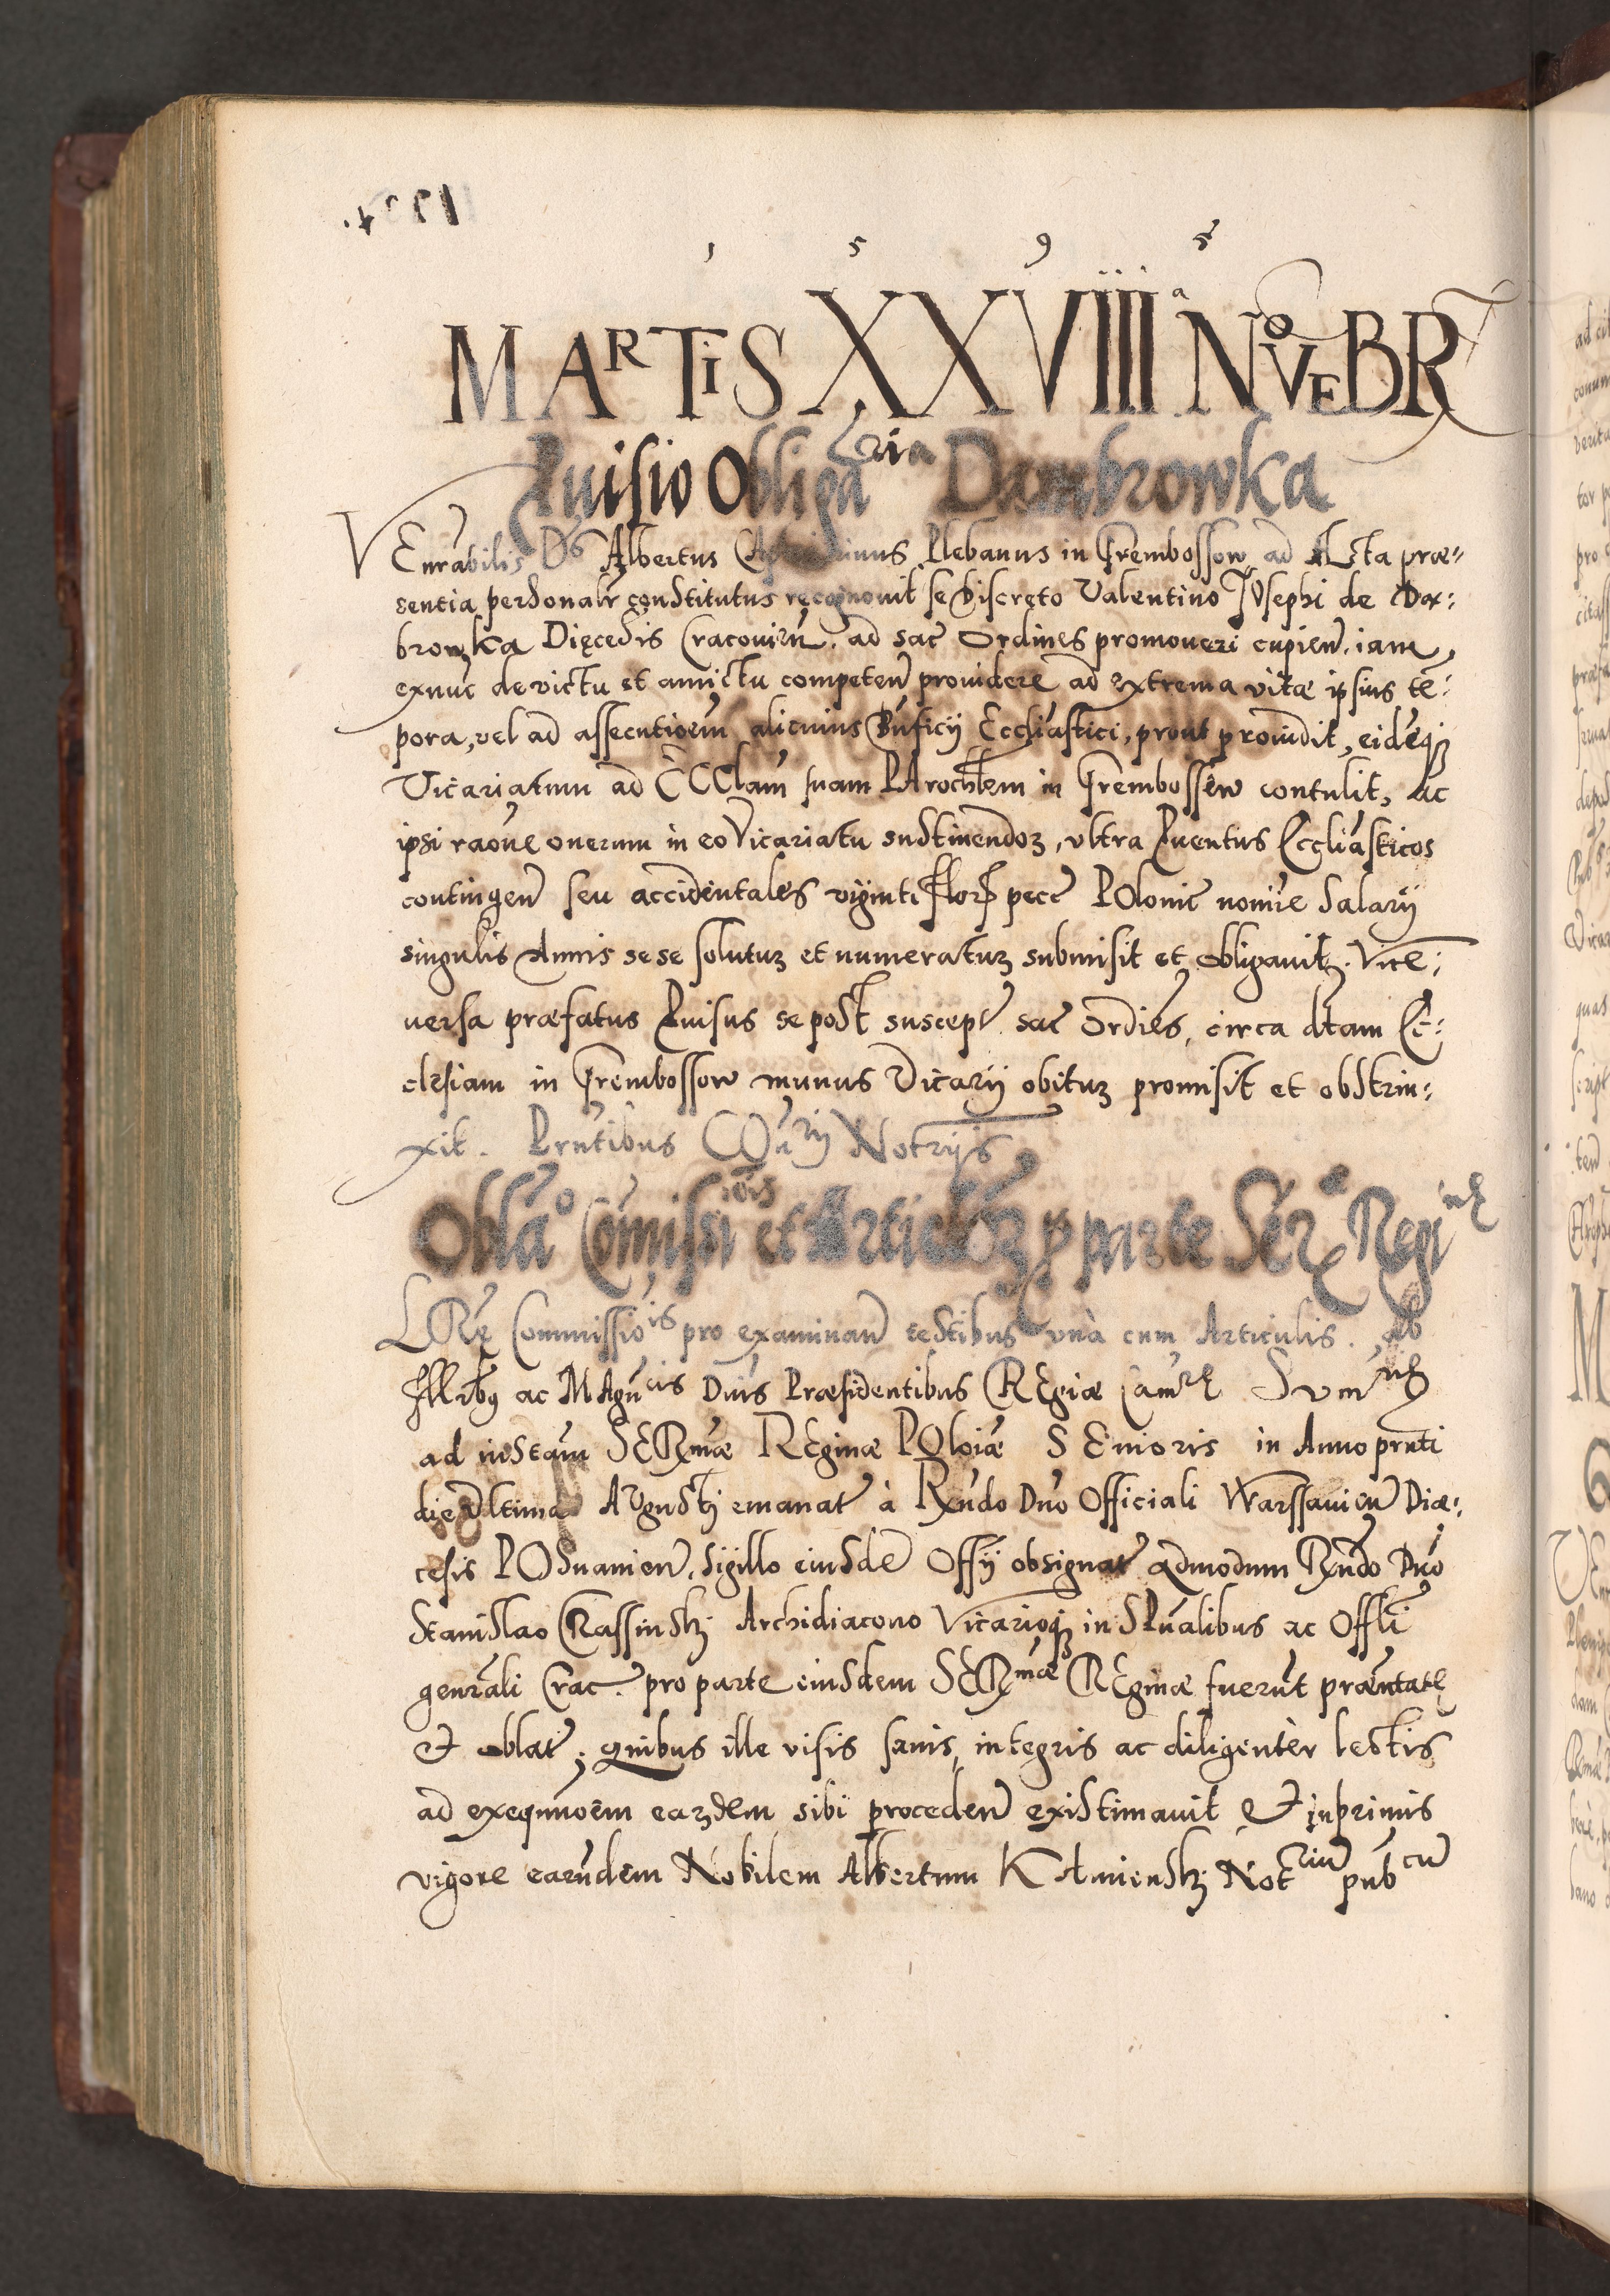 1 5 9 5
MARTIS XXVIIIIa NOVEBR
Puisio Obligatria Dambrowka
VEnrabilis Ds Albertus Plebanus in Grembossow ad ACta præ=
sentia personalr constitutus recognouit se Discreto Valentino IOsephi de Da=
browka Dięcesis Cracouien. ad sac Ordines promoueri cupien. iam,
exnuc de victu et amictu competen prouidere ad extrema vitæ ipsius tē=
pora, vel ad assecutioem alicuius Bnficij Eccliastici, prout prouidit, eidēq
Vicariatum ad ECClam suam PArochlem in Grembossow contulit, Ac
ipsi raone onerum in eo Vicariatu sustinendoꝝ, vltra Puentus Eccliasticos
contingen seu accidentales viginti flor pecc POlonic nomie Salarij
singulis Annis sese solutuꝝ et numeratuꝝ submisit et obligauit. Vice=
uersa præfatus Puisus se post suscept sac Ordies, circa dtam Ec=
clesiam in Grembossow munus Vicarij obituꝝ promisit et obstrin=
xit. Prntibus Notrijs
Oblao Comissiois et Articloꝝ p parte Serae Reginę
LRę Commissiois pro examinan testibus vnà cum Articulis. ab
Illribꝰ ac MAgncis Dnis Præsidentibus REgiæ Camrę
ad instam SERmæ REginæ POloiæ SEnioris in Anno prnti
die Vltima AVgusti emanat à Rndo Dno Officiali Warssauien Diæ=
cesis POsnanien. Sigillo eiusde Offij obsignat admodum Rndo Dno
Stanislao Crassinskj Archidiacono Vicarioqꝫ in SPualibus ac Offli
genrali Crac. pro parte eiusdem SERmæ REginæ fuerūt præntatę
Et oblat; Quibus ille visis sanis, integris ac diligentèr lectis
ad exequuoem earꝫdem sibi proceden existimauit Et inprimis
vigore earūdem Nobilem Albertum Notriū pubcū